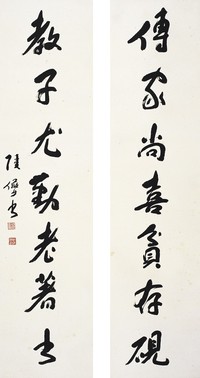 傳家尚喜貧存硯
教子尤勤老著書